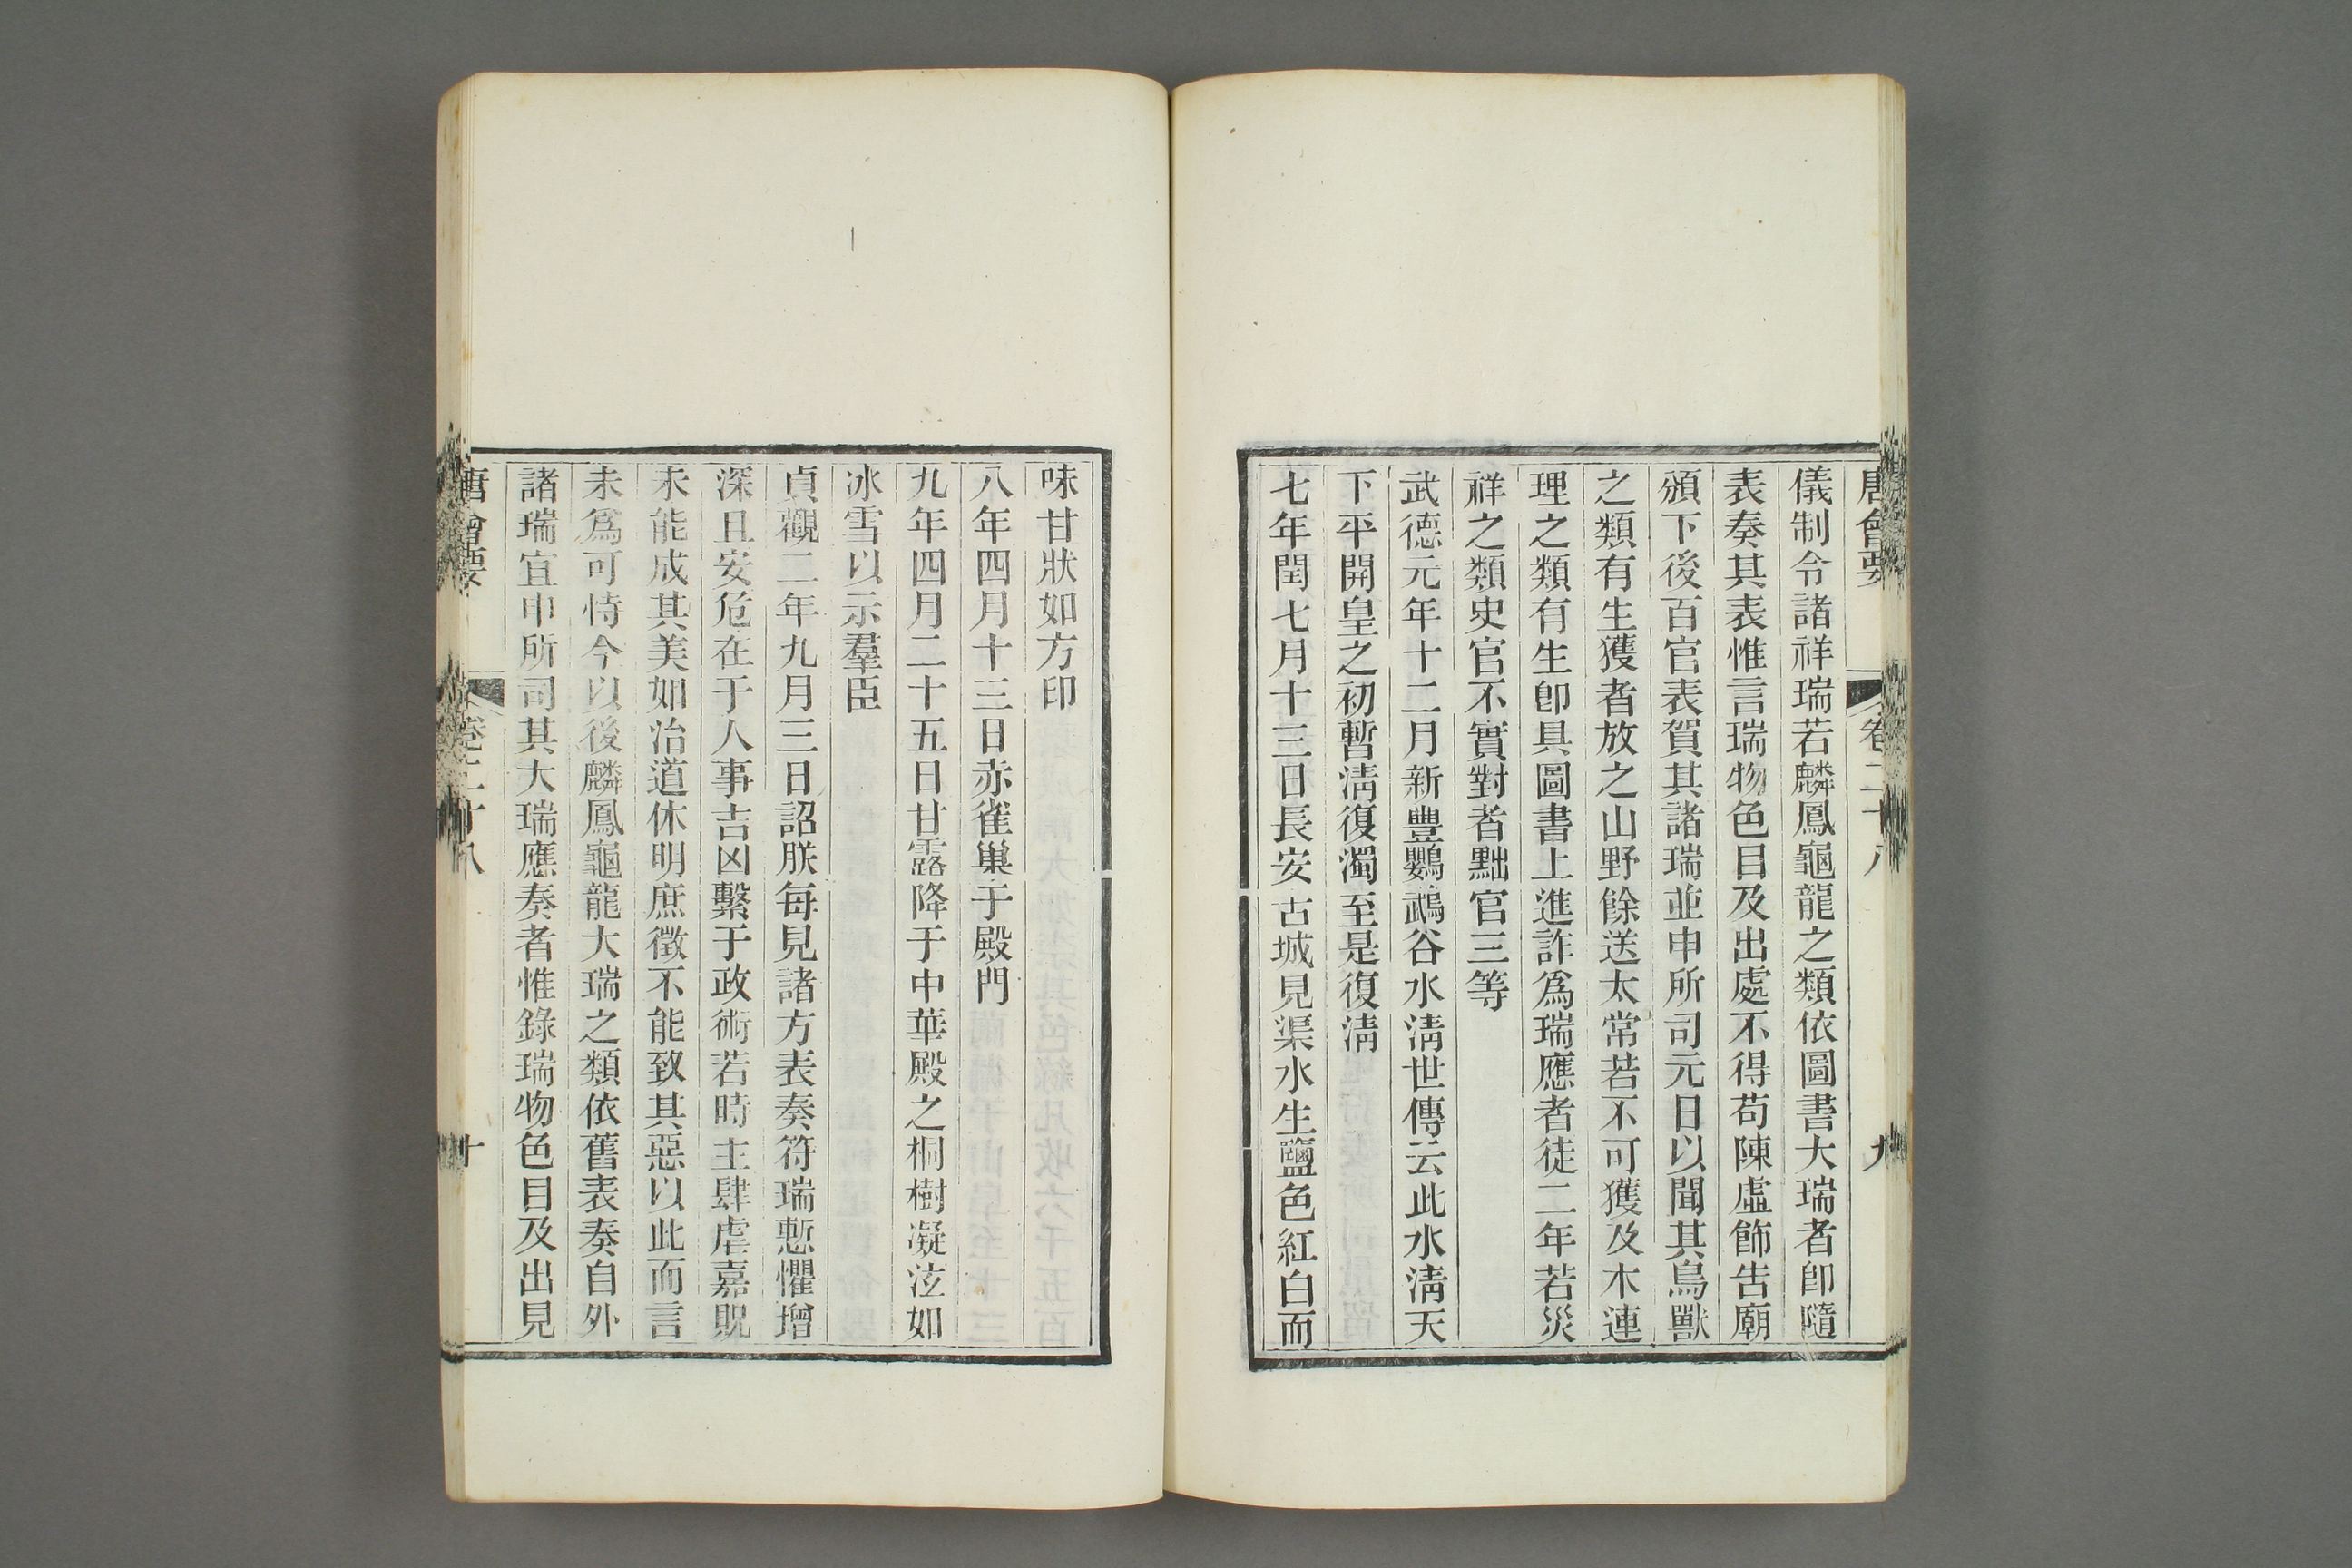 唐會要 卷二十八 九
儀制令諸祥瑞若麟鳳龜龍之類依圖書大瑞者卽隨
表奏其表惟言瑞物色目及出處不得苟陳虛飾告廟
頒下後百官表賀其諸瑞並申所司元日以聞其鳥獸
之類有生獲者放之山野餘送太常若不可獲及木連
理之類有生卽具圖書上進詐爲瑞應者徒二年若災
祥之類史官不實對者黜官三等
武德元年十二月新豐鸚鵡谷水淸世傳云此水淸天
下平開皇之初暫淸復濁至是復淸
七年閏七月十三日長安古城見渠水生鹽色紅白而
味甘狀如方印
八年四月十三日赤雀巢于殿門
九年四月二十五日甘露降于中華殿之桐樹凝泫如
冰雪以示羣臣
貞觀二年九月三日詔朕每見諸方表奏符瑞慙懼增
深且安危在于人事吉凶繫于政術若時主肆虐嘉貺
未能成其美如治道休明庶徵不能致其惡以此而言
未爲可恃今以後麟鳳龜龍大瑞之類依舊表奏自外
諸瑞宜申所司其大瑞應奏者惟錄瑞物色目及出見
唐會要 卷二十八 十